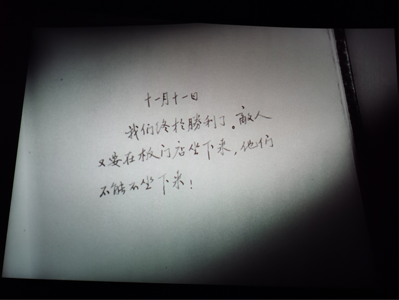 十一月十一日
我们终於勝利了。敌人
又要在板门店坐下来，他们
不能不坐下来！